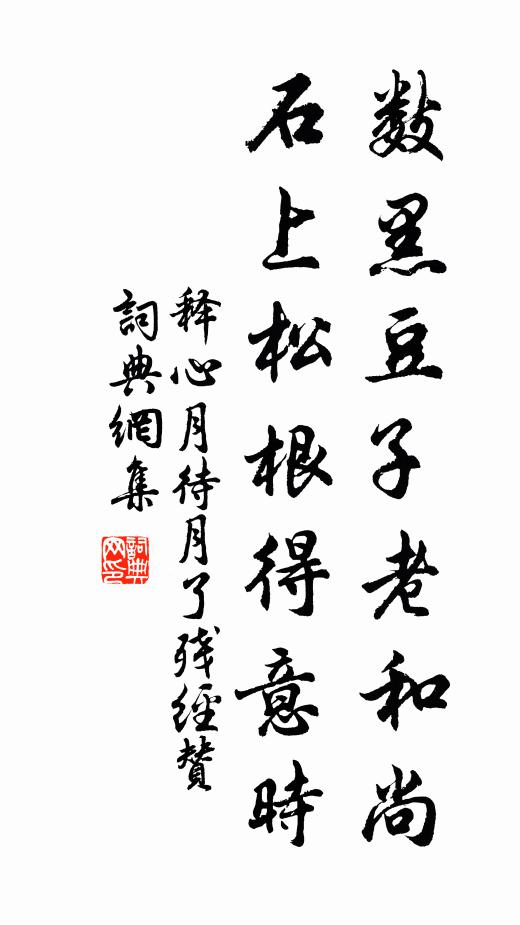 数黑豆子老和尚
石上松根得意時
释心月待月了残經贊
詞典網集
詞典
网印